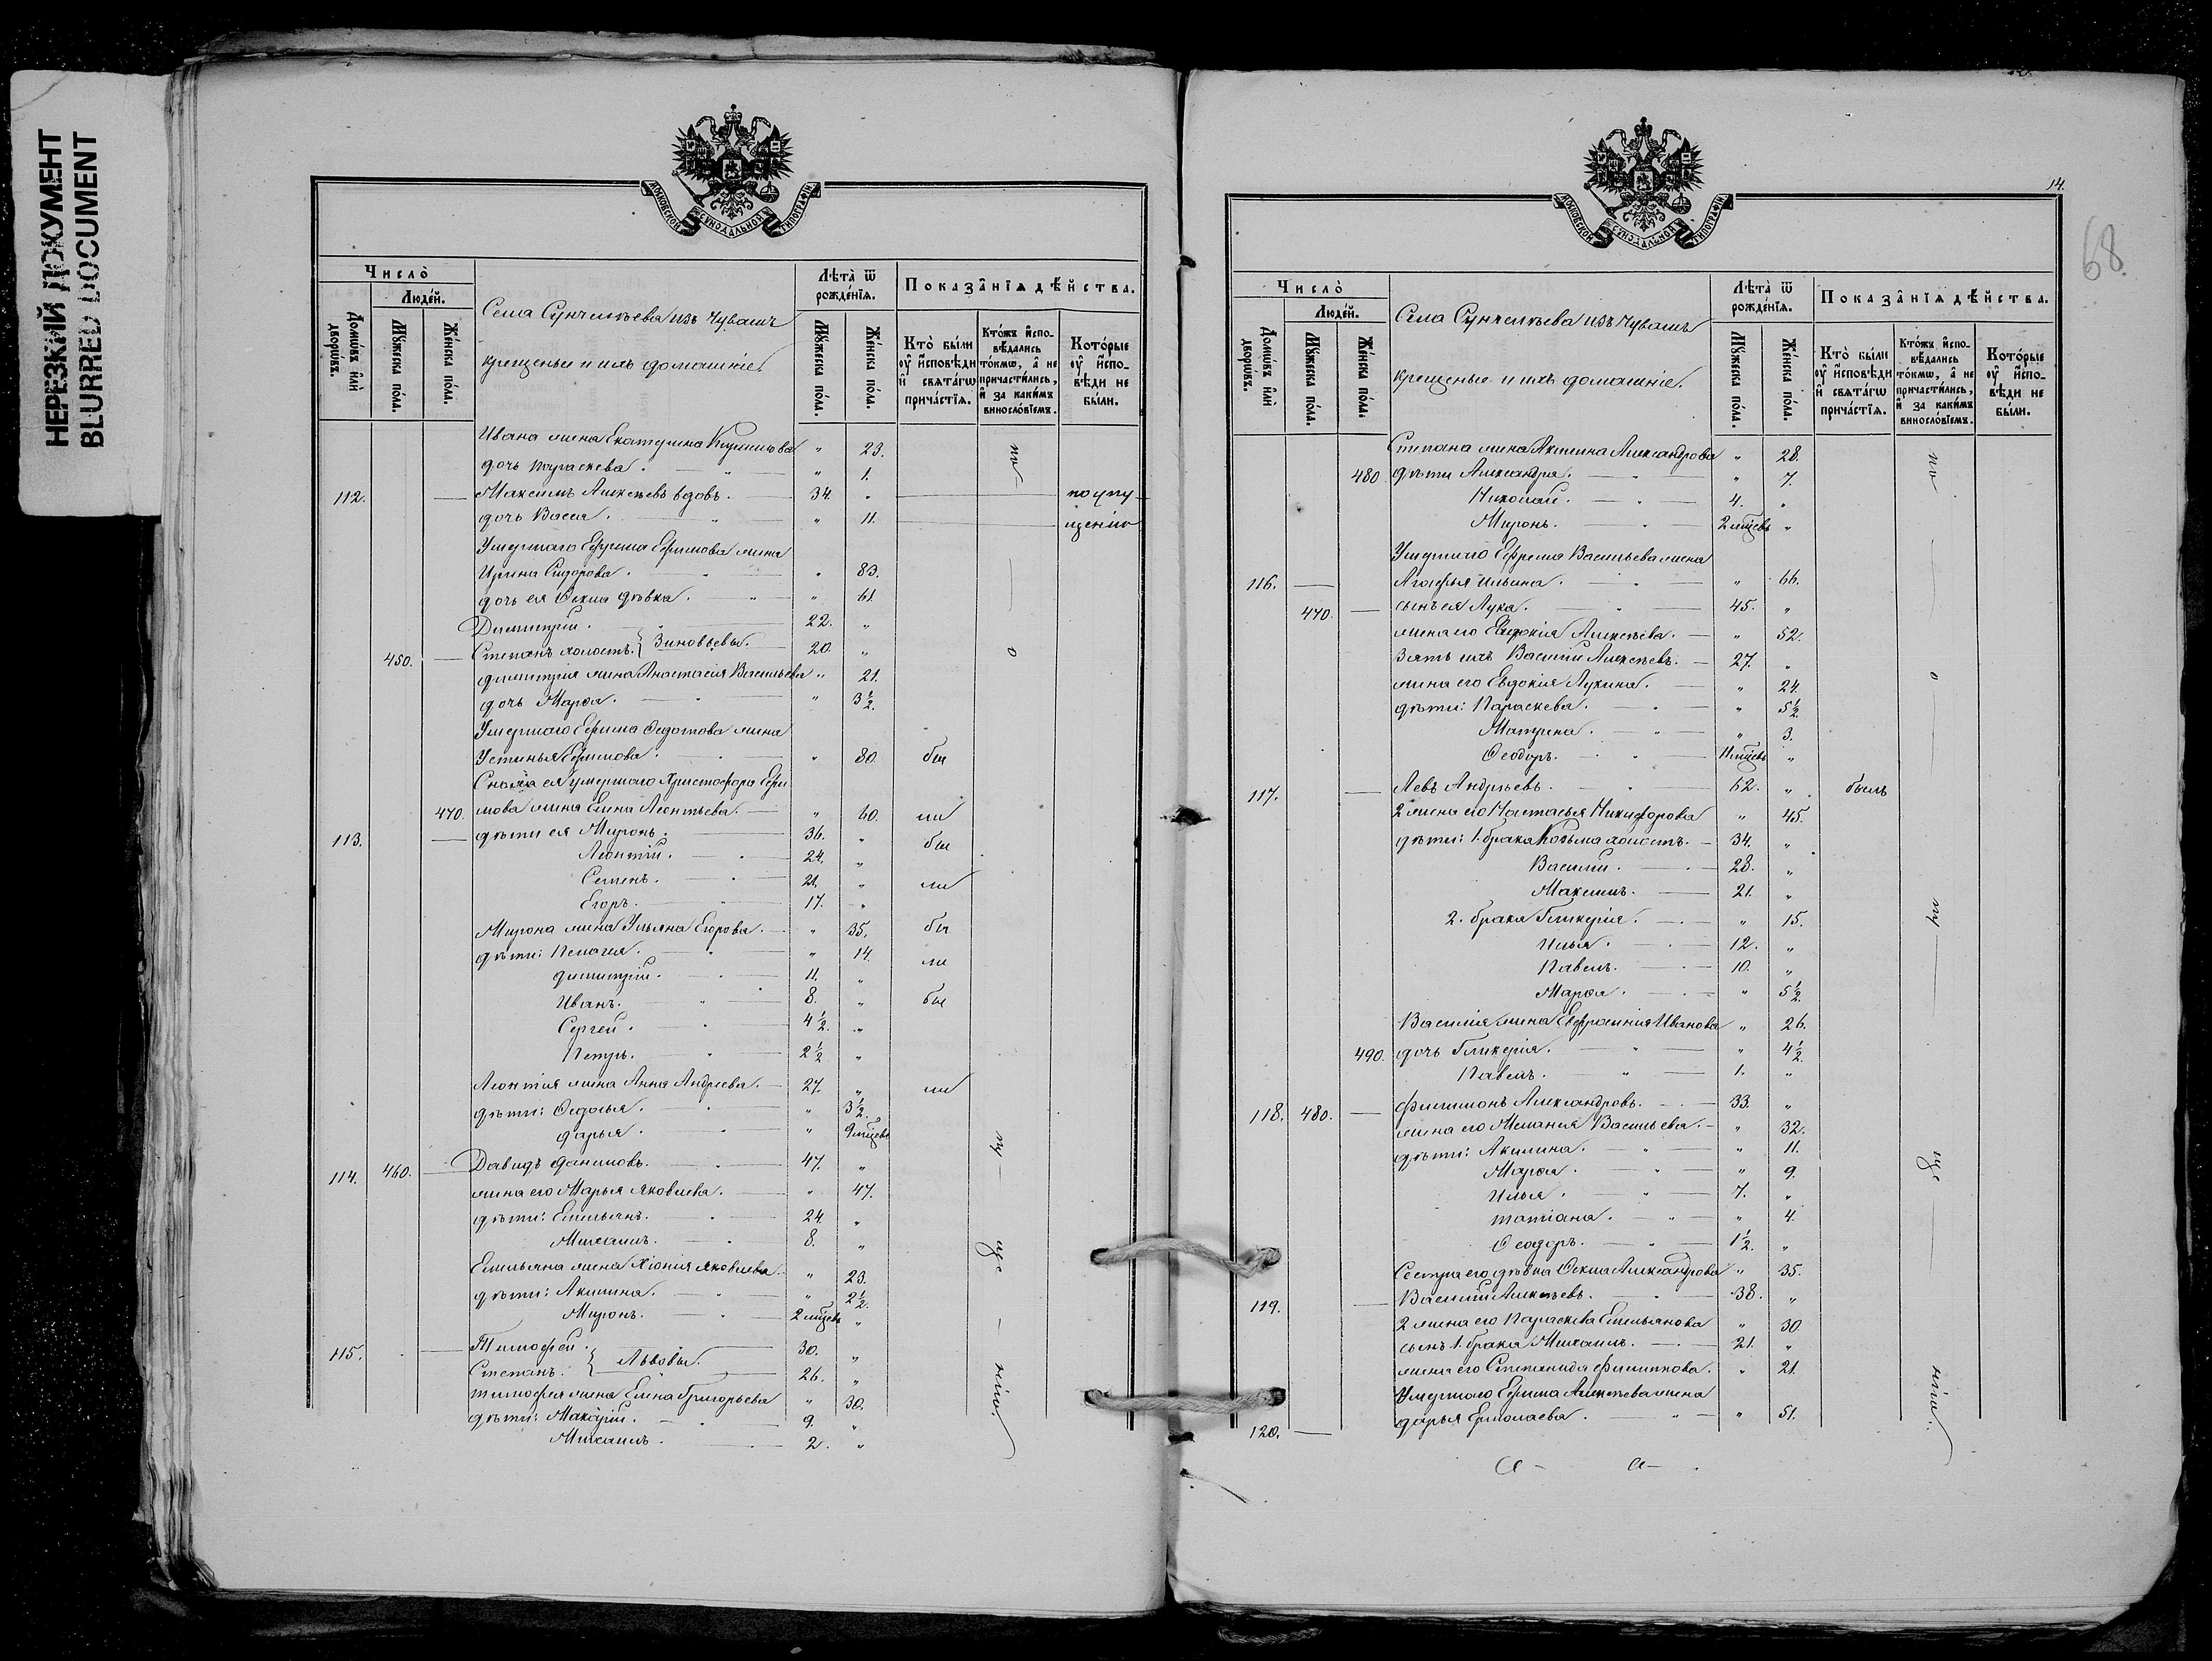 НЕРЕЗКИЙ ДОКУМЕНТ
BLURRED DOCUMENT
МОСКОВСКОЙ СѴНОДАЛЬНОЙ ТИПОГРАФІИ
Число̀
Людей.
Домѡвъ и҆лѝ дворѡвъ.
Мꙋ́жеска по́ла.
Же́нска по́ла.
Села Сунчелѣева изъ Чувашъ
крещеные и ихъ домашніе.
Лѣта̀ ѿ рожде́нїѧ.
Мꙋ́жеска по́ла.
Же́нска по́ла.
Показа̂нїѧ дѣ́йства.
Кто̀ бы́ли оу҆ и҆сповѣди и҆ свѧта́гѡ прича́стїѧ.
Кто́жъ и҆сповѣ́дались то́кмѡ, а҆ не причасти́лись, и҆ за каки́мъ винословїемъ.
Кото́рые оу҆ и҆сповѣди не бы́ли.
Ивана жена Екатерина Кириллова " 23. по
дочь Параскева. " " 1.
112. Максимъ Алексѣевъ вдовъ. 34. " по упу
дочь Васса. " " 11. щенію
Умершаго Ефрема Ефимова жена
Ирина Сидорова. " " 83.
дочь ея Ѳекла дѣвка. " " 61
Димитрій. " 22. "
450. Степанъ холостъ. } Зиновьевы. 20. " о
Димитрія жена Анастасія Васильева " 21.
дочь Марѳа. " " 3 1/2.
Умершаго Ефима Ѳедотова жена
Устинья Ефимова. " " 80. бы
Сноха ея умершаго Христофора Ефи
470. мова жена Елена Леонтьева. " 60. ли
113. дѣти ея Миронъ. 36. " бы
Леонтій. " 24. "
Семенъ. " 21. " ли
Егоръ. " 17. "
Мирона жена Ульяна Егорова. " 35. бы
дѣти: Пелагія. " " 14. ли
Димитрій. " 11. "
Иванъ. " 8. " бы
Сергей. " 4 1/2. "
Петръ. " 2 1/2 "
Леонтія жена Анна Андреева. 27. " ли
дѣти: Ѳедосья. " " 3 1/2.
Дарья. " " 9 мѣсцевъ
114. 460. Давидъ Даниловъ. " 47. " пу
жена его Марья Яковлева. " 47.
дѣти: Емельянъ. " 24. "
Михаилъ. " 8. "
Емельяна жена Хіонія Яковлева. " 23. ще
дѣти: Акилина. " " 2 1/2.
Миронъ. " 2 мѣсцевъ "
115. Тимофей. 30. "
Степанъ. } Львовы. 26. "
Тимофея жена Елена Григорьева " 30. нію.
дѣти: Макарій. " 9. "
Михаилъ. 2. "
14.
68.
МОСКОВСКОЙ СѴНОДАЛЬНОЙ ТИПОГРАФІИ
Число̀
Людей.
Домѡвъ и҆лѝ дворѡвъ.
Мꙋ́жеска по́ла.
Же́нска по́ла.
Села Сунчелѣева изъ Чувашъ
крещеные и ихъ домашніе.
Лѣта̀ ѿ рожде́нїѧ.
Мꙋ́жеска по́ла.
Же́нска по́ла.
Показа̂нїѧ дѣ́йства.
Кто̀ бы́ли оу҆ и҆сповѣди и҆ свѧта́гѡ прича́стїѧ.
Кто́жъ и҆сповѣ́дались то́кмѡ, а҆ не причасти́лись, и҆ за каки́мъ винословїемъ.
Кото́рые оу҆ и҆сповѣди не бы́ли.
Степана жена Акилина Александрова " 28. по
480 дѣти Александра. " " 7.
Николай. " 4. "
Миронъ. " 2 мѣсцевъ "
Умершаго Ефрема Васильева жена
116. Агафья Ильина. " " 66.
470. сынъ ея Лука. " 45. "
жена его Евдокія Алексѣева. " 52.
Зять ихъ Василій Алексѣевъ. 27. "
жена его Евдокія Лукина. " 24. о
дѣти: Параскева. " " 5 1/2.
Матрина. " " 3.
Ѳеодоръ. " 11 мѣсцевъ "
117. Левъ Андреевъ. " 62. " былъ
2 жена его Настасья Никифорова " 45.
дѣти: 1. брака Козьма холостъ. 34. "
Василій. " 28. "
Максимъ. 21. "
2. брака Гликерія. " " 15. пу
Илья. " 12. "
Павелъ. " 10. "
Марѳа. " " 5 1/2.
Василія жена Евфросинія Иванова " 26.
490. дочь Гликерія. " " 4 1/2.
Павелъ. " 1. "
118. 480. Филимонъ Александровъ. 33. "
жена его Меланія Васильева. " 32.
дѣти: Акилина. " " 11.
Марѳа. " " 9. ще
Илья. " 7. "
Татіана. " " 4.
Ѳеодоръ. " 1 1/2. "
Сестра его дѣвка Ѳекла Александрова " 35.
119. Василій Алексѣевъ. " 38. "
2 жена его Параскева Емельянова " 30.
сынъ 1. брака Михаилъ. 21. "
жена его Степанида Филиппова. " 21. нію.
Умершаго Ефима Алексѣева жена
120. Дарья Ермолаева. " " 51.